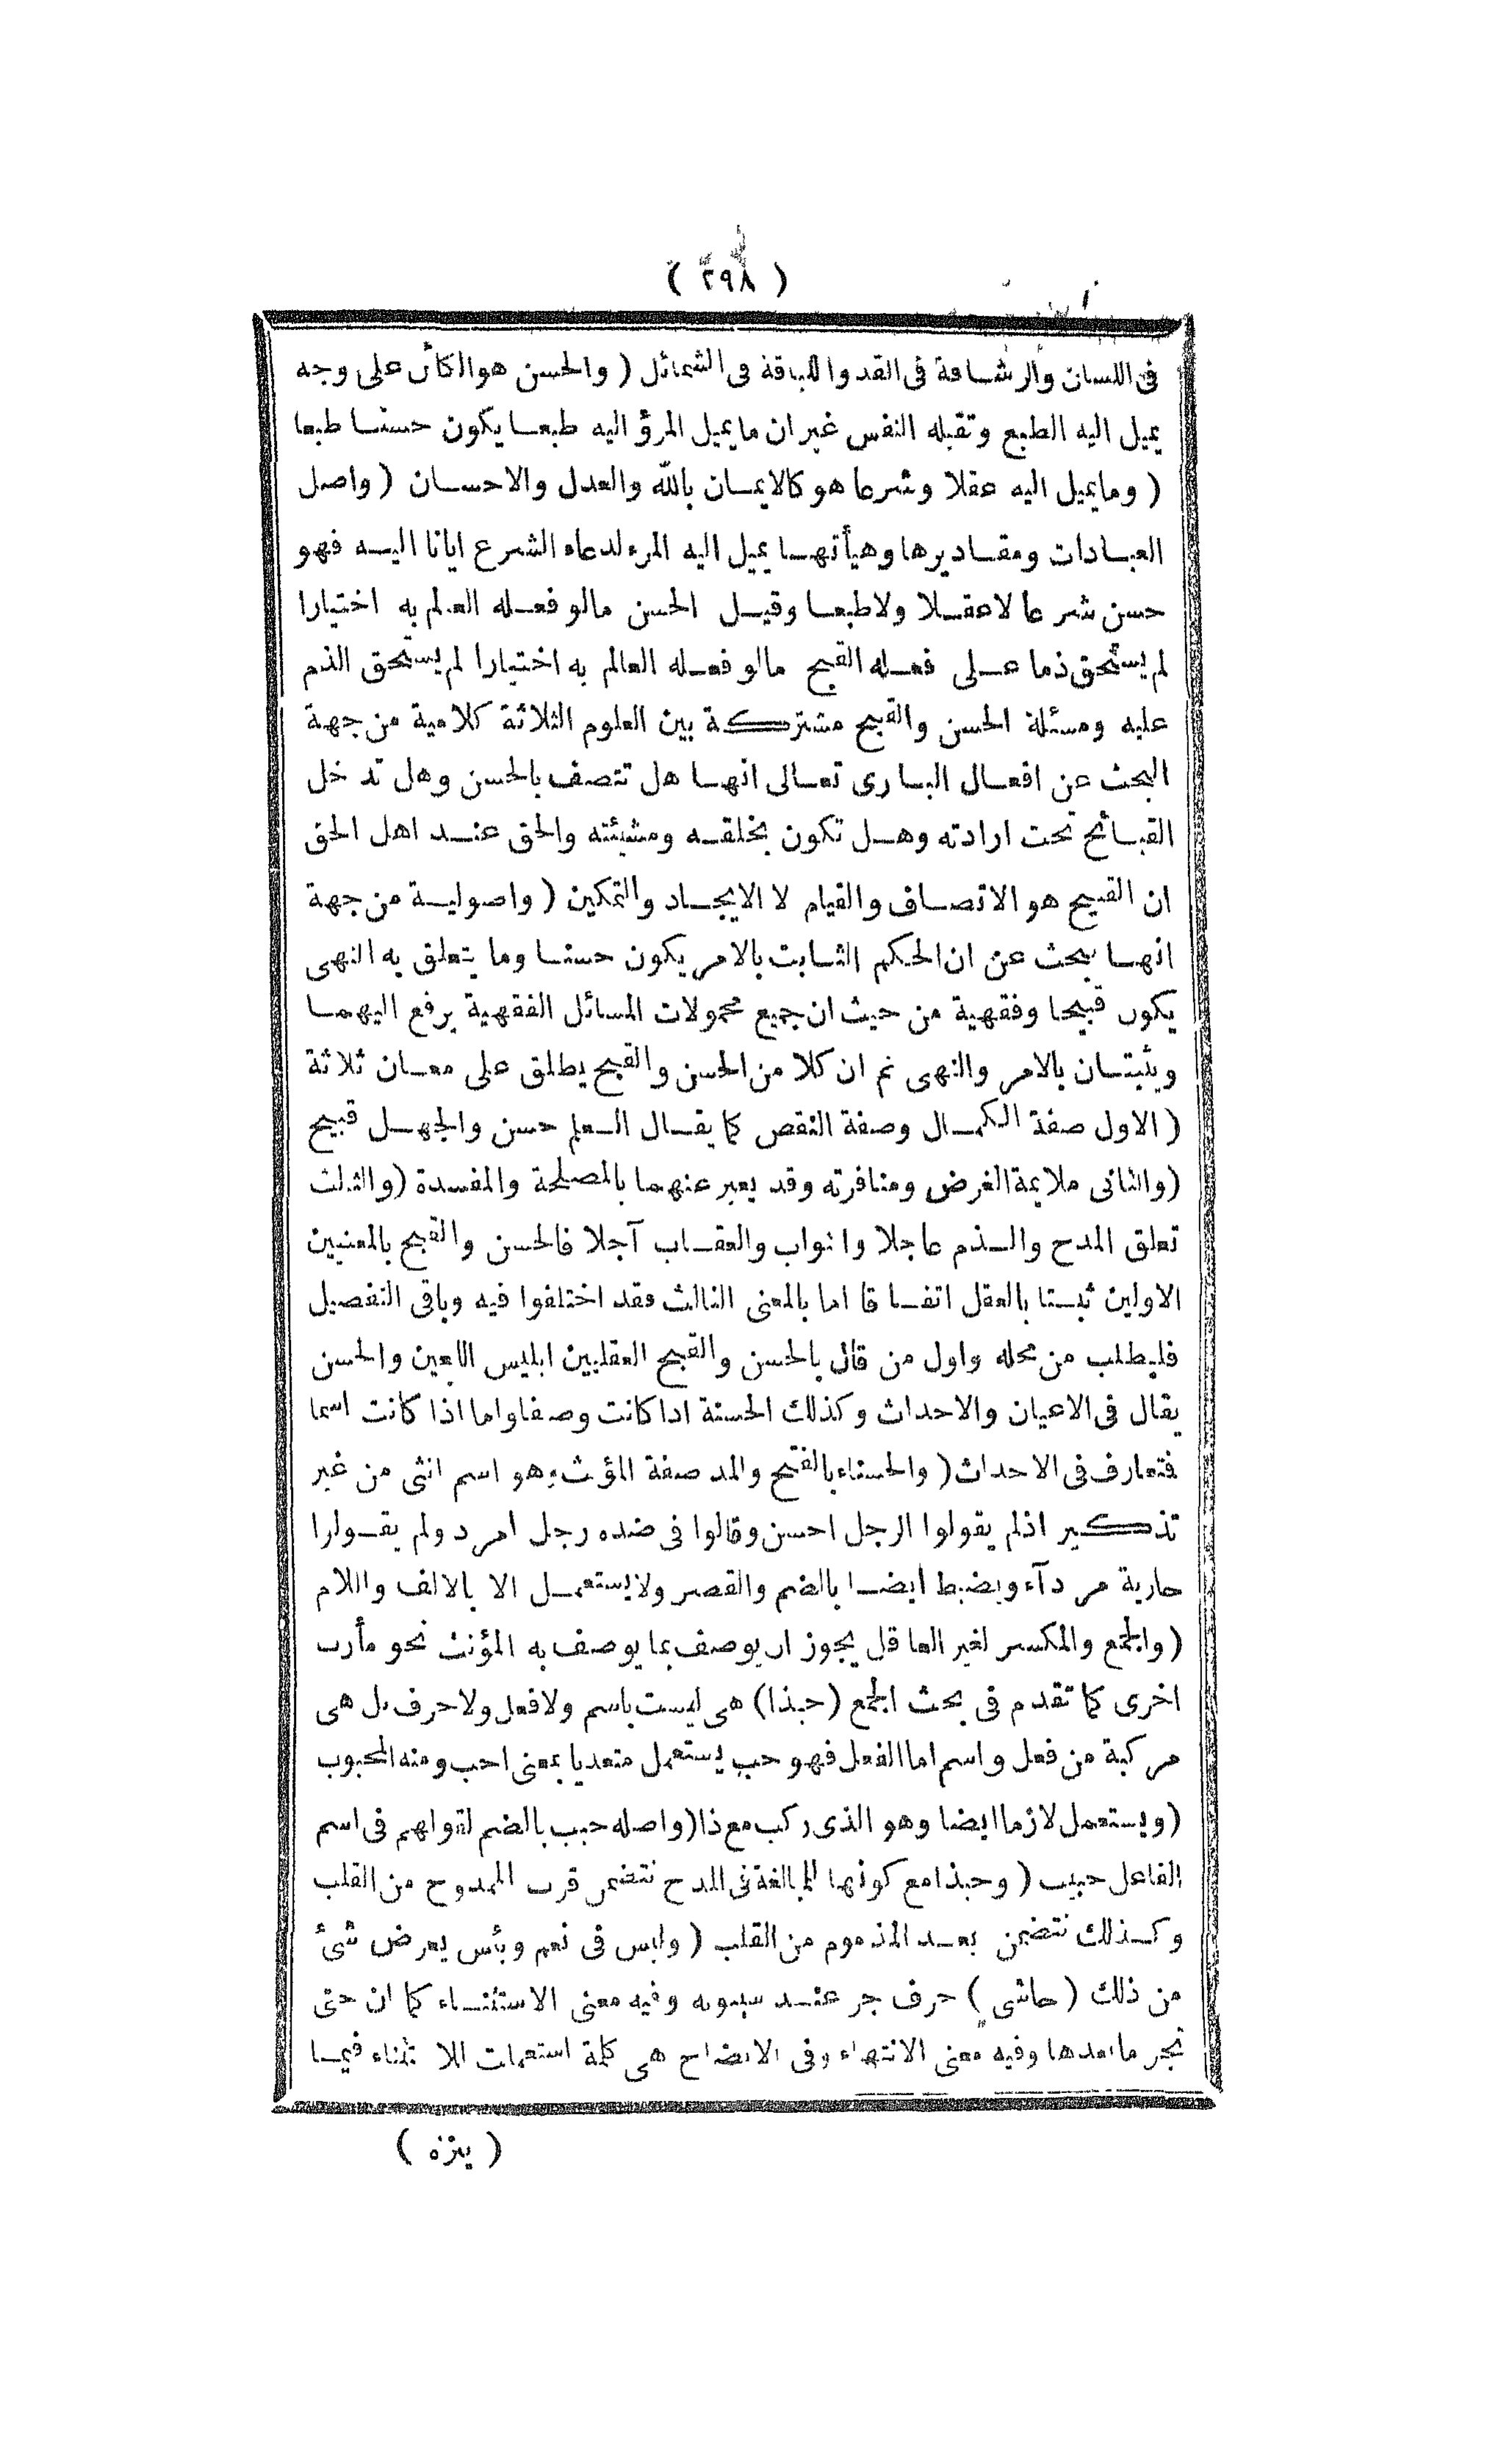 ( ٢٩٨ )
فى اللسان والرشاقة فى القد واللباقة فى الشمائل ( والحسن هوالكائن على وجه
يميل اليه الطبع وتقبله النفس غير ان مايميل المرؤ اليه طبعا يكون حسنا طبعا
( ومايميل اليه عقلا وشرعا هو كالايمان بالله والعدل والاحسان ( واصل
العبادات ومقاديرها وهيأتها يميل اليه المرء لدعاء الشرع ايانا اليه فهو
حسن شرعا لاعقلا ولاطبعا وقيل الحسن مالو فعله العالم به اختيارا
لم يستحق ذما على فعله القبيح مالو فعله العالم به اختيارا لم يستحق الذم
عليه ومسئلة الحسن والقبيح مشتركة بين العلوم الثلاثة كلامية من جهة
البحث عن افعال البارى تعالى انها هل تتصف بالحسن وهل تدخل
القبائح تحت ارادته وهل تكون بخلقه ومشيئته والحق عند اهل الحق
ان القبيح هو الاتصاف والقيام لا الايجاد والتمكين ( واصولية من جهة
انها يبحث عن ان الحكم الثابت بالامر يكون حسنا وما يتعلق به النهى
يكون قبيحا وفقهية من حيث ان جميع محمولات المسائل الفقهية يرفع اليهما
ويثبتان بالامر والنهى ثم ان كلا من الحسن والقبح يطلق على معان ثلاثة
( الاول صفة الكمال وصفة النقص كما يقال العلم حسن والجهل قبيح
(والثانى ملايمة الغرض ومنافرته وقد يعبر عنهما بالمصلحة والمفسدة (والثالث
تعلق المدح والذم عاجلا والثواب والعقاب آجلا فالحسن والقبح بالمعنيين
الاولين ثبتا بالعقل اتفاقا اما بالمعنى الثالث فقد اختلفوا فيه وباقى التفصيل
فليطلب من محله واول من قال بالحسن والقبح العقليين ابليس اللعين والحسن
يقال فى الاعيان والاحداث وكذلك الحسنة اذا كانت وصفا واما اذا كانت اسما
فتعارف فى الاحداث ( والحسناء بالفتح والمد صفة المؤنث وهو اسم انثى من غير
تذكير اذلم يقولوا الرجل احسن وقالوا فى ضده رجل امرد ولم يقولوا
جارية مردآء ويضبط ايضا بالضم والقصر ولايستعمل الا بالالف واللام
( والجمع والمكسر لغير العاقل يجوز ان يوصف بما يوصف به المؤنث نحو مأرب
اخرى كما تقدم فى بحث الجمع (حبذا) هى ليست باسم ولافعل ولاحرف بل هى
مركبة من فعل واسم اما الفعل فهو حب يستعمل متعديا بمعنى احب ومنه المحبوب
(ويستعمل لازما ايضا وهو الذى ركب مع ذا (واصله حبب بالضم لقولهم فى اسم
الفاعل حبيب ( وحبذا مع كونها للمبالغة فى المدح تتضمن قرب الممدوح من القلب
وكذلك تتضمن بعد المذموم من القلب ( وليس فى نعم وبأس يعرض شئ
من ذلك (حاشى) حرف جر عند سيبويه وفيه معنى الاستثناء كما ان حتى
تجر مابعدها وفيه معنى الانتهاء وفى الايضاح هى كلمة استعملت للاستثناء فيما
( ينزه )